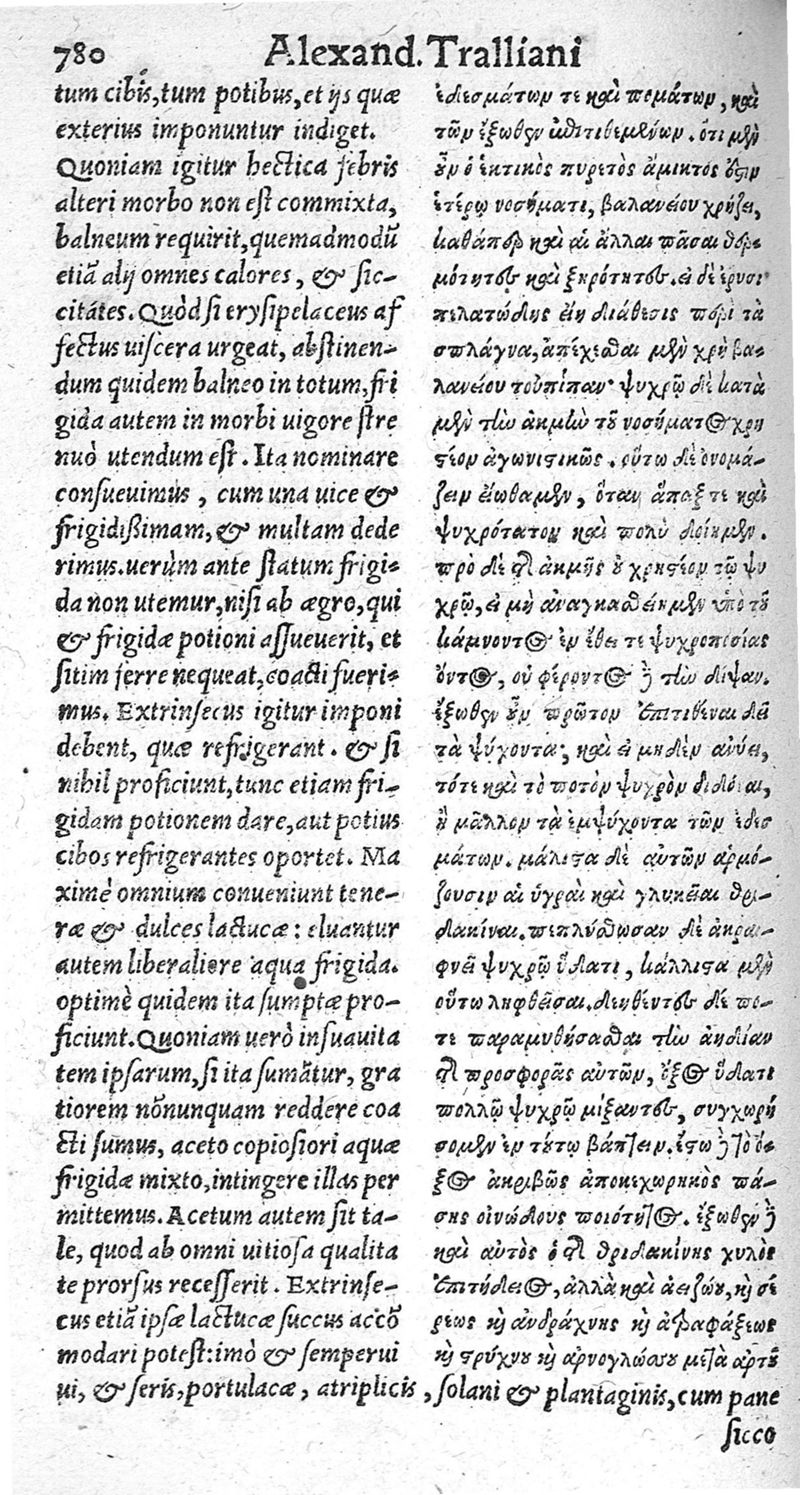 780 Alexand. Tralliani
tum cibis, tum potibus, et ijs quæ
exterius imponuntur indiget.
Quoniam igitur hectica febris
alteri morbo non est commixta,
balneum requirit, quemadmodũ
etiã alij omnes calores, & sic-
citátes. Quòd si erysipelaceus af
fectus uiscera urgeat, abstinen-
dum quidem balneo in totum, fri
gida autem in morbi uigore stre
nuò utendum est. Ita nominare
consueuimus, cum una uice &
frigidißimam, & multam dede
rimus. uerùm ante statum frigi-
da non utemur, nisi ab ægro, qui
& frigidæ potioni assueuerit, et
sitim ferre nequeat, coacti fueri-
mus. Extrinsecus igitur imponi
debent, quæ refrigerant. & si
nihil proficiunt, tunc etiam fri-
gidam potionem dare, aut potius
cibos refrigerantes oportet. Ma
ximè omnium conueniunt tene-
ræ & dulces lactucæ: eluantur
autem liberaliore aqua frigida.
optimè quidem ita sumptæ pro-
ficiunt. Quoniam uerò insuauita
tem ipsarum, si ita sumãtur, gra
tiorem nõnunquam reddere coa
cti sumus, aceto copiosiori aquæ
frigidæ mixto, intingere illas per
mittemus. Acetum autem sit ta-
le, quod ab omni uitiosa qualita
te prorsus recesserit. Extrinse-
cus etiã ipsæ lactucæ succus accõ
modari potest: imò & semperui
ui, & seris, portulacæ, atriplicis, solani & plantaginis, cum pane
sicco
ἐδεσμάτων τε καὶ πεμάτων, καὶ
τῶν ἔξωθεν ἐπιτιθεμένων. ὅτι μὲν
οὖν ὁ ἑκτικὸς πυρετὸς ἄμικτος ὅςιν
ἑτέρῳ νοσήματι, βαλανείου χρῄζει,
καθάπερ καὶ αἱ ἄλλαι πᾶσαι θερ-
μότητες καὶ ξηρότητες. εἰ δὲ ἐρυσι
πελατώδης εἴη διάθεσις περὶ τὰ
σπλάγνα, ἀπέχεσθαι μὲν χρὴ βα-
λανείου τοὐπίπαν· ψυχρῷ δὲ κατὰ
μὲν τὴν ἀκμὴν τοῦ νοσήματος χρη
ςέον ἀγωνιςικῶς. οὕτω δὲ ὀνομά-
ζειν εἰώθαμεν, ὅταν ἅπαξ τε καὶ
ψυχρότατον καὶ πολὺ δοίημεν.
πρὸ δὲ τῆς ἀκμῆς οὐ χρηςέον τῷ ψυ
χρῷ, εἰ μὴ ἀναγκασθείημεν ὑπὸ τοῦ
κάμνοντος ἐν ἔθει τε ψυχροποσίας
ὄντος, οὐ φέροντος δὲ τὴν δίψαν.
ἔξωθεν οὖν πρῶτον ἐπιτιθέναι δεῖ
τὰ ψύχοντα, καὶ εἰ μηδὲν ἀνύει,
τότε καὶ τὸ ποτὸν ψυχρὸν διδόναι,
ἢ μᾶλλον τὰ ἐμψύχοντα τῶν ἐδεσ
μάτων. μάλιςα δὲ αὐτῶν ἁρμό-
ζουσιν αἱ ὑγραὶ καὶ γλυκεῖαι θρι-
δακίναι. πεπλύσθωσαν δὲ ἀκραι-
φνεῖ ψυχρῷ ὕδατι, κάλλιςα μὲν
οὕτω ληφθεῖσαι. δεηθέντες δέ πο-
τε παραμυθήσασθαι τὴν ἀηδίαν
τῆς προσφορᾶς αὐτῶν, ὄξος ὕδατι
πολλῷ ψυχρῷ μίξαντες, συγχωρή
σομεν ἐν τούτῳ βάπτειν. ἔςω δὲ τὸ ὄ-
ξος ἀκριβῶς ἀποκεχωρηκὸς πά-
σης οἰνώδους ποιότητος. ἔξωθεν δὲ
καὶ αὐτὸς ὁ τῆς θριδακίνης χυλὸς
ἐπιτήδειος, ἀλλὰ καὶ ἀειζώου, καὶ σέ
ρεως καὶ ἀνδράχνης καὶ ἀτραφάξεως
καὶ ςρύχνου καὶ ἀρνογλώσσου μετὰ ἄρτου